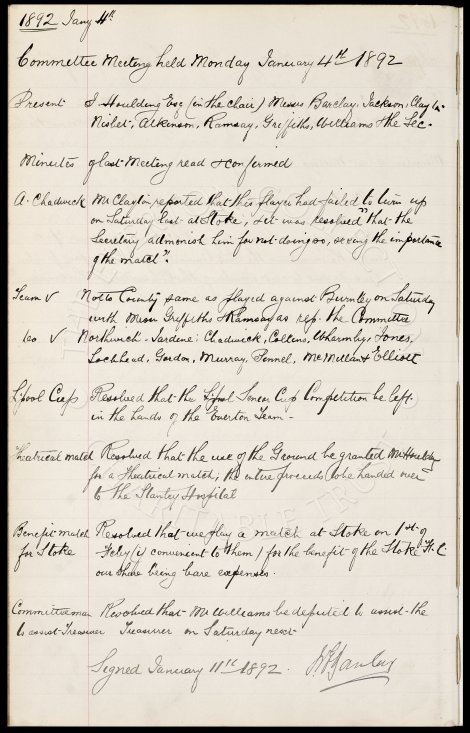 1892 Jany 4th
Committee Meeting held Monday January 4th 1892
Present J Houlding Esq (in the chair) Messrs Barclay, Jackson, Clayton
Nisbet, Atkinson, Ramsay, Griffiths, Williams & the Sec.
Minutes of last Meeting read & confirmed
A. Chadwick Mr Clayton reported that this player had failed to turn up
on Saturday last at Stoke, & it was resolved that the
Secretary admonish him for not doing so, seeing the importance
of the match.
Team v Notts County same as played against Burnley on Saturday
with Messrs Griffiths & Ramsay as rep. the Committee
do v Northwich - Jardine: Chadwick, Collins, Wharmby, Jones,
Lochhead, Gordon, Murray, Pinnel, McMillan & Elliott
L'pool Cup Resolved that the L'pool Senior Cup Competition be left
in the hands of the Everton Team -
Theatrical match Resolved that the use of the Ground be granted Mr Houlding
for a Theatrical match; the entire proceeds to be handed over
to the Stanley Hospital
Benefit match Resolved that we play a match at Stoke on 1st of
for Stoke Feby (if convenient to them) for the benefit of the Stoke F.C.
our share being bare expenses.
Committeeman Resolved that Mr Williams be deputed to assist the
to assist Treasurer Treasurer on Saturday next
Signed January 11th 1892.